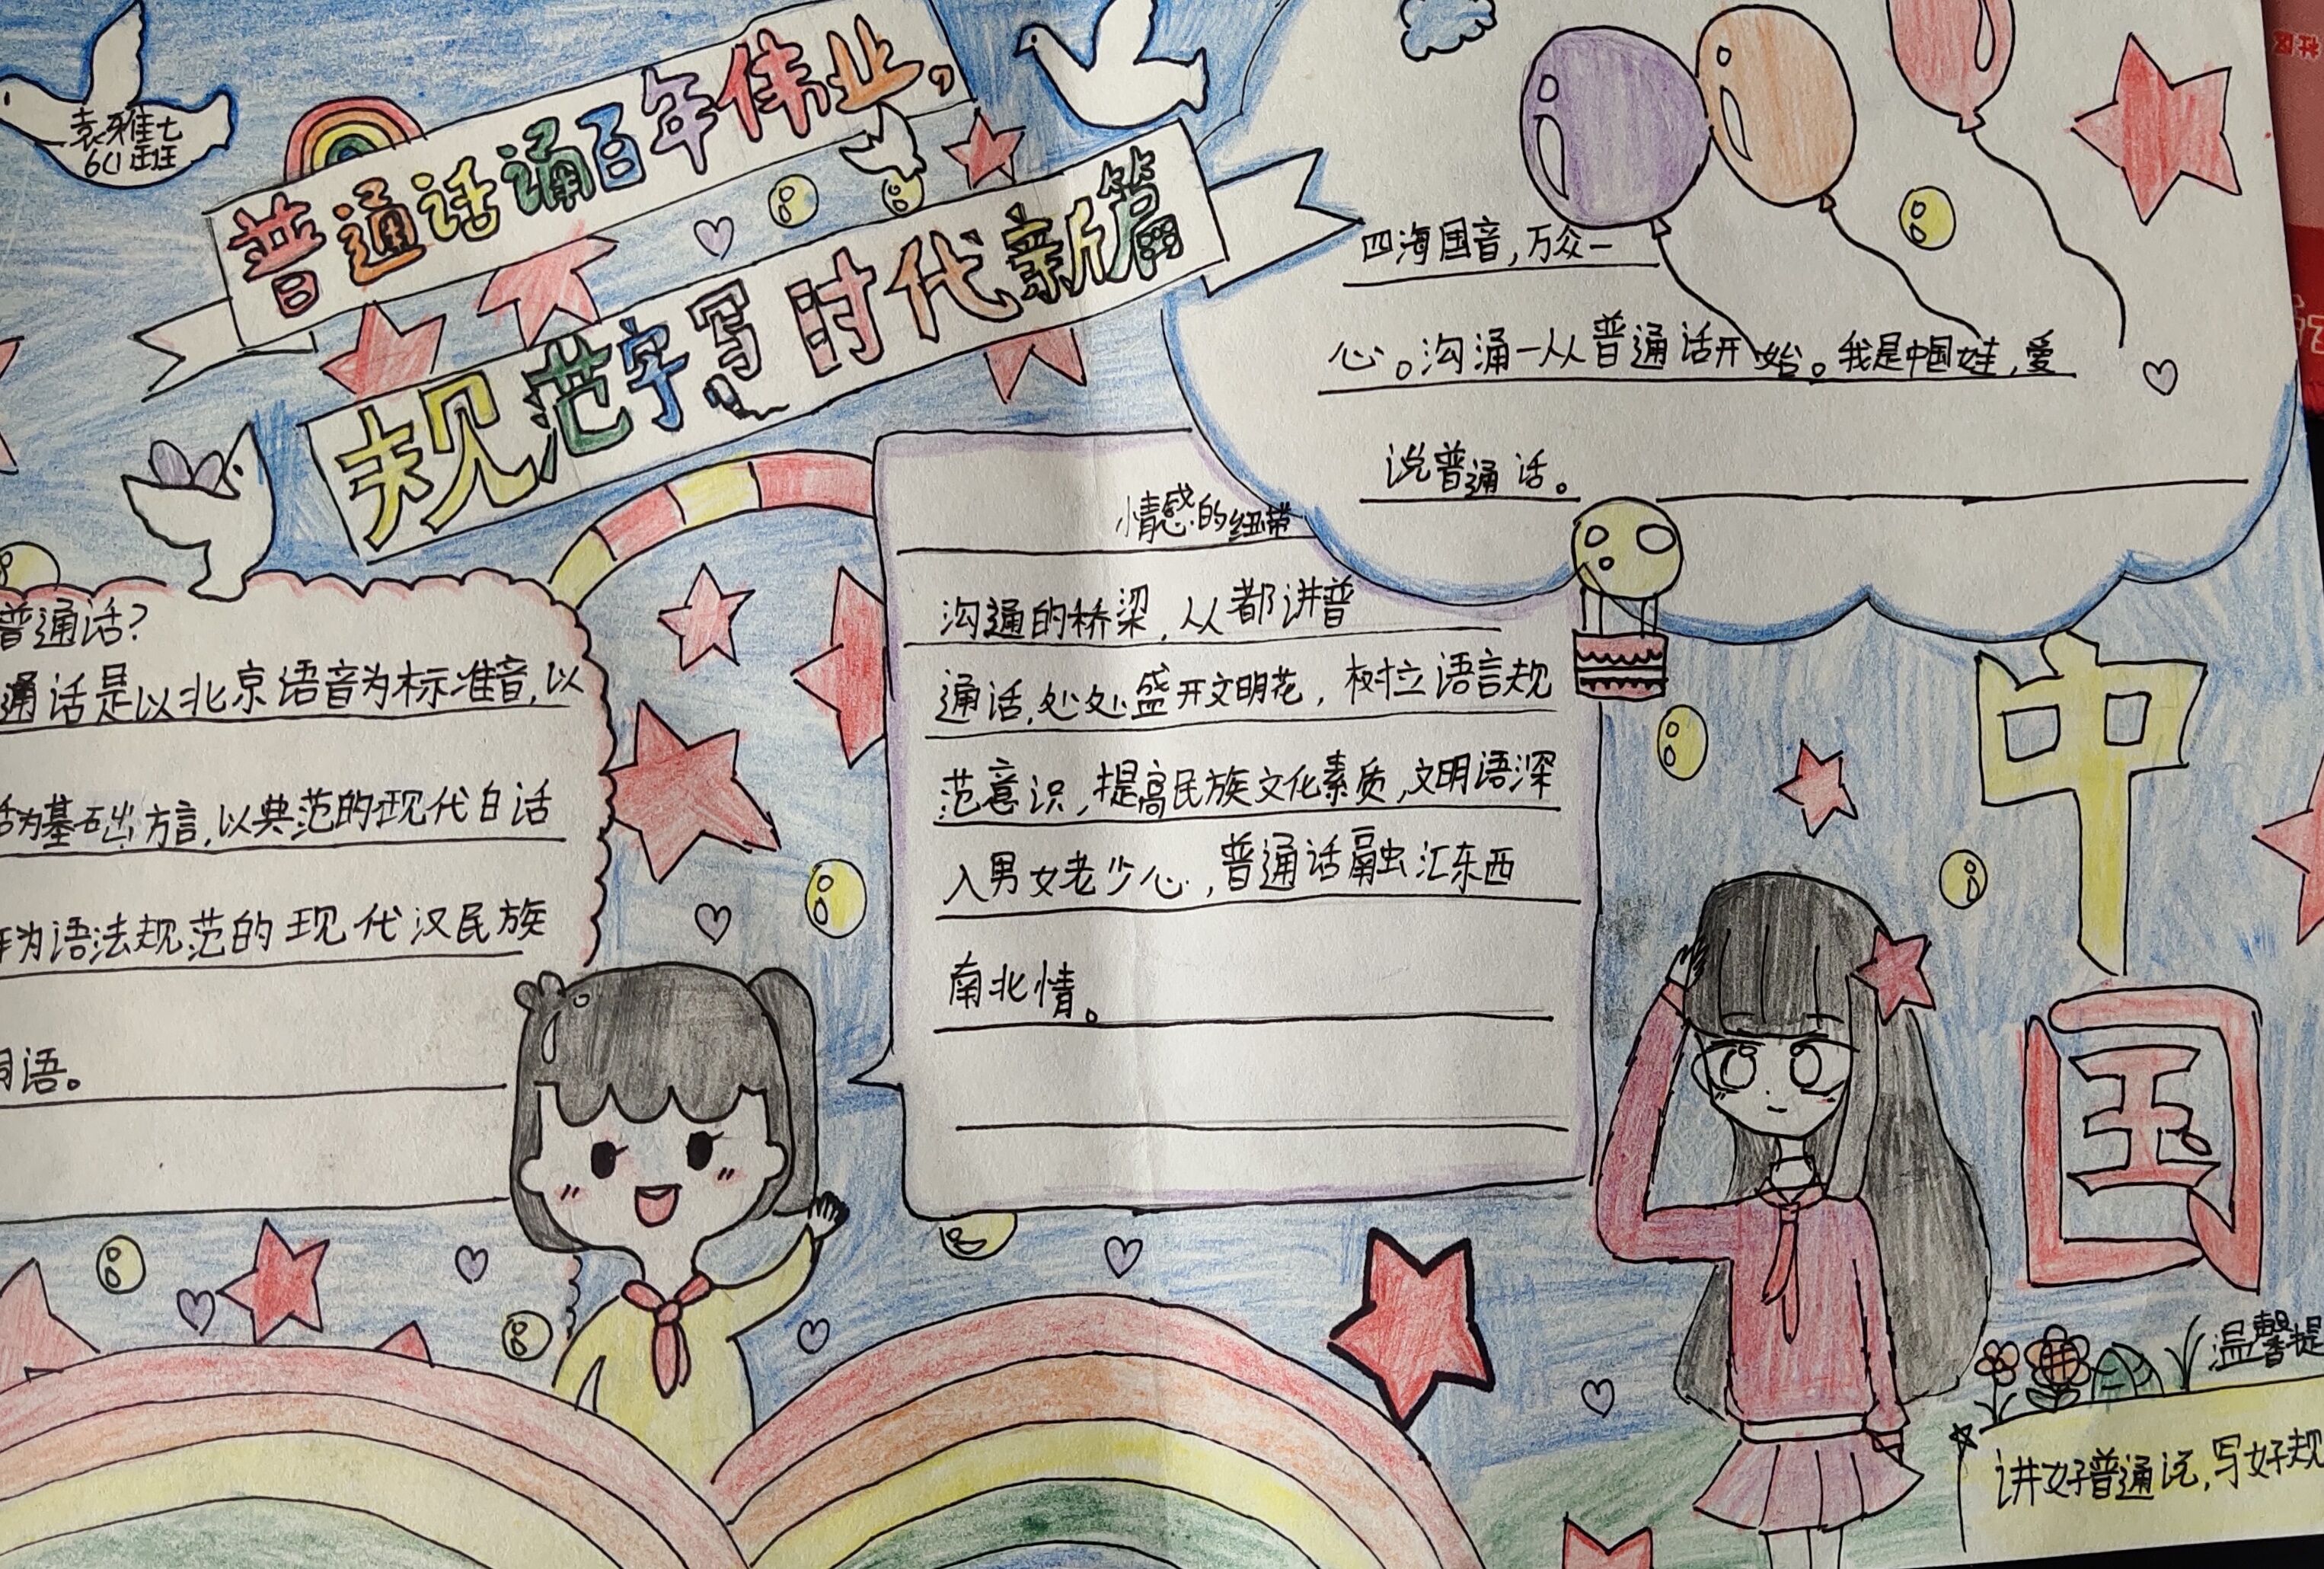 袁雅七
6(1)班
普通话诵百年伟业,
规范字写时代新篇
四海国音,万众一
心。沟涌一从普通话开始。我是中国娃,爱
说普通话。
情感的纽带
沟通的桥梁,从都讲普
通话,处处盛开文明花,树立语言规
范意识,提高民族文化素质,文明语深
入男女老少心,普通话融汇东西
南北情。
普通话?
通话是以北京语音为标准音,以
话为基础方言,以典范的现代白话
作为语法规范的现代汉民族
同语。
中
国
温馨提
讲好普通话,写好规